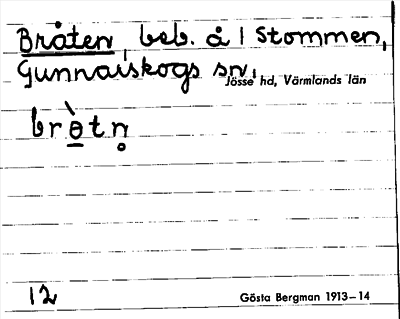 Bråten, beb. å 1 Stommen,
Gunnarskogs sn,
Jösse hd, Värmlands län
brɵ̀tn̥
12
Gösta Bergman 1913–14